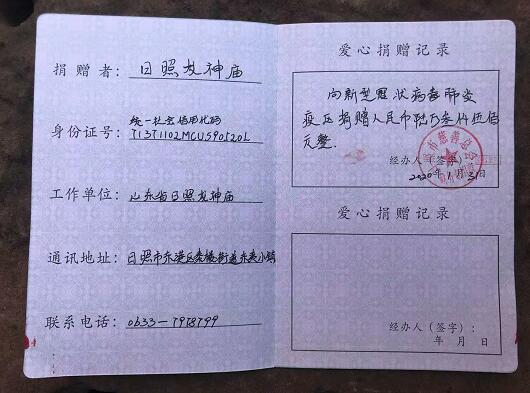 捐赠者：日照龙神庙
统一社会信用代码
身份证号：71371102MCUS90520L
工作单位：山东省日照龙神庙
通讯地址：日照市东港区秦楼街道东夷小镇
联系电话：0633-7978799
爱心捐赠记录
向新型冠状病毒肺炎
疫区捐赠人民币陆万柒仟伍佰
元整.
经办人（签字）：
2020年1月31日
爱心捐赠记录
经办人（签字）：
年 月 日